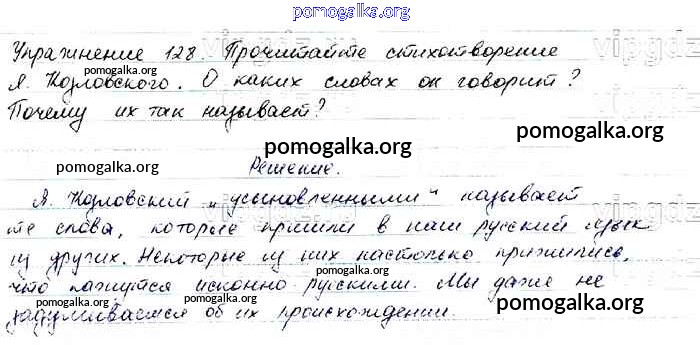 pomogalka.org
Упражнение 128. Прочитайте стихотворение
pomogalka.org
Я. Козловского. О каких словах он говорит?
Почему их так называет?
pomogalka.org
pomogalka.org
pomogalka.org
Решение.
Я. Козловский „усыновленными“ называет
те слова, которые пришли в наш русский язык
pomogalka.org
из других. Некоторые из них настолько прижились,
pomogalka.org
что кажутся исконно русскими. Мы даже не
pomogalka.org
pomogalka.org
задумываемся об их происхождении.